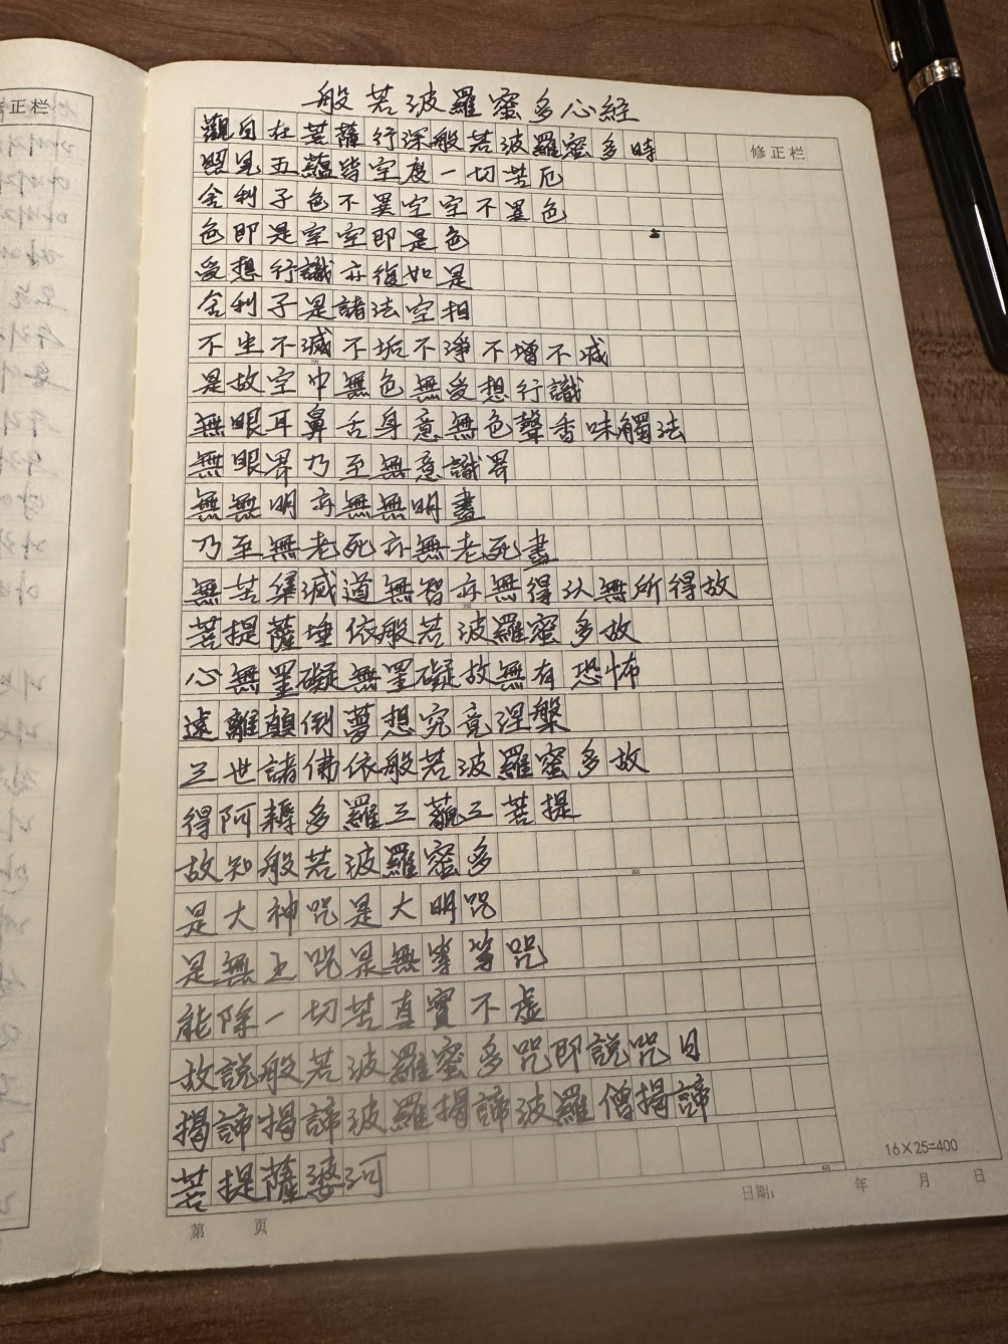 正栏
般若波羅蜜多心經
修正栏
觀自在菩薩行深般若波羅蜜多時
照見五蘊皆空度一切苦厄
舍利子色不異空空不異色
色即是空空即是色
受想行識亦復如是
舍利子是諸法空相
不生不滅不垢不淨不增不减
是故空中無色無受想行識
無眼耳鼻舌身意無色聲香味觸法
無眼界乃至無意識界
無無明亦無無明盡
乃至無老死亦無老死盡
無苦集滅道無智亦無得以無所得故
菩提薩埵依般若波羅蜜多故
心無罣礙無罣礙故無有恐怖
遠離顛倒夢想究竟涅槃
三世諸佛依般若波羅蜜多故
得阿耨多羅三藐三菩提
故知般若波羅蜜多
是大神咒是大明咒
是無上咒是無等等咒
能除一切苦真實不虛
故說般若波羅蜜多咒即說咒曰
揭諦揭諦波羅揭諦波羅僧揭諦
菩提薩婆訶
16×25=400
第 页
日期: 年 月 日